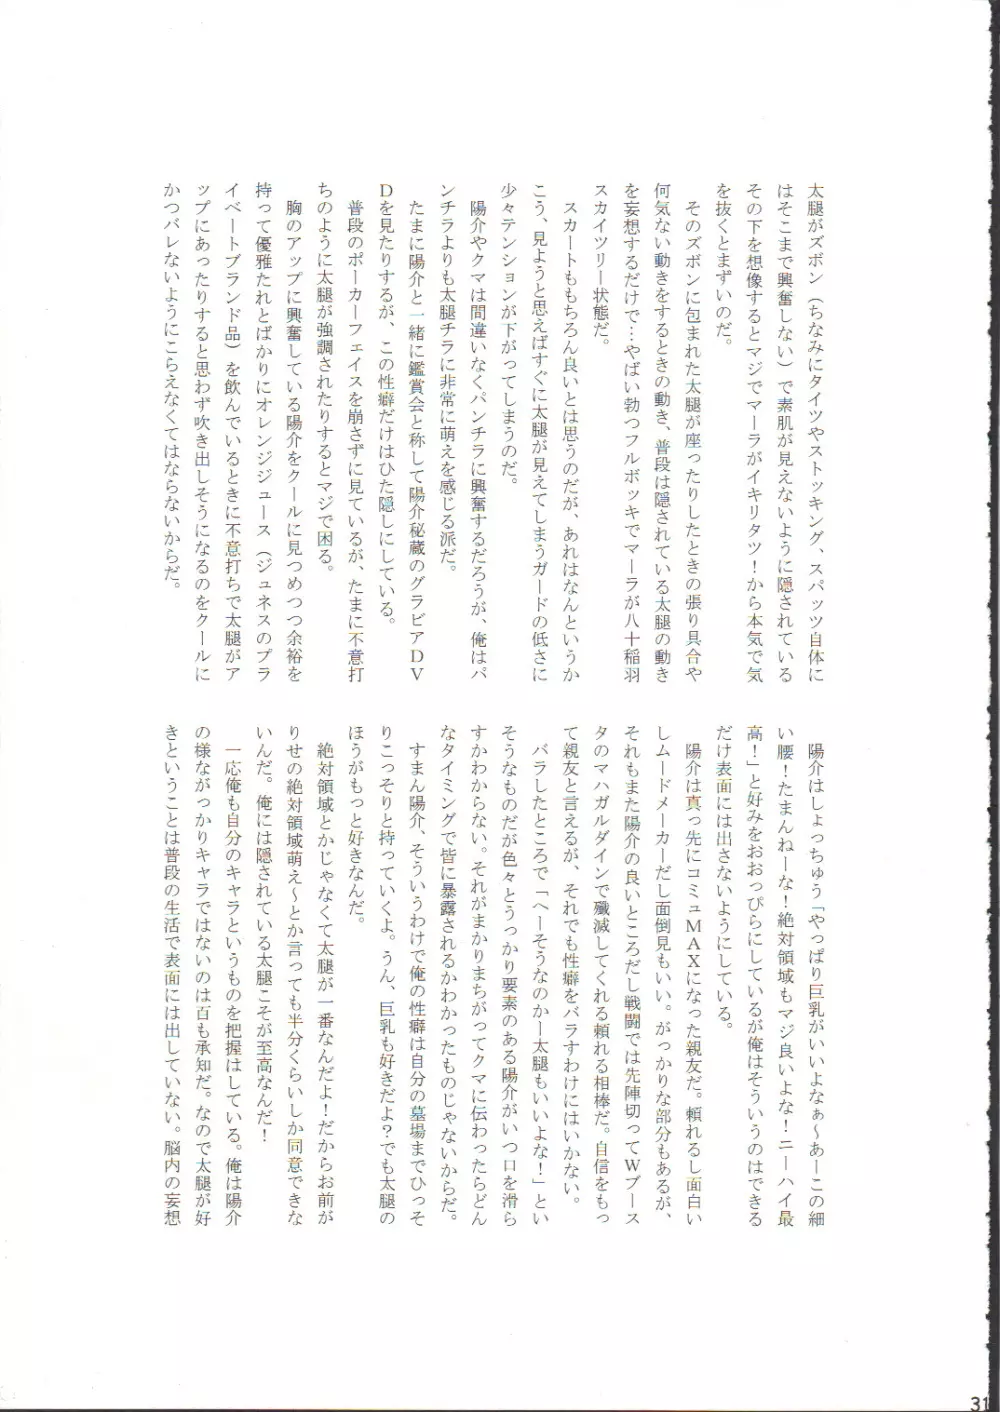 太腿がズボン（ちなみにタイツやストッキング、スパッツ自体に
はそこまで興奮しない）で素肌が見えないように隠されている
その下を想像するとマジでマーラがイキリタツ！から本気で気
を抜くとまずいのだ。
そのズボンに包まれた太腿が座ったりしたときの張り具合や
何気ない動きをするときの動き、普段は隠されている太腿の動き
を妄想するだけで…やばい勃つフルボッキでマーラが八十稲羽
スカイツリー状態だ。
スカートももちろん良いとは思うのだが、あれはなんというか
こう、見ようと思えばすぐに太腿が見えてしまうガードの低さに
少々テンションが下がってしまうのだ。
陽介やクマは間違いなくパンチラに興奮するだろうが、俺はパ
ンチラよりも太腿チラに非常に萌えを感じる派だ。
たまに陽介と一緒に鑑賞会と称して陽介秘蔵のグラビアDV
Dを見たりするが、この性癖だけはひた隠しにしている。
普段のポーカーフェイスを崩さずに見ているが、たまに不意打
ちのように太腿が強調されたりするとマジで困る。
胸のアップに興奮している陽介をクールに見つめつつ余裕を
持って優雅たれとばかりにオレンジジュース（ジュネスのプラ
イベートブランド品）を飲んでいるときに不意打ちで太腿がア
ップにあったりすると思わず吹き出しそうになるのをクールに
かつバレないようにこらえなくてはならないからだ。
陽介はしょっちゅう「やっぱり巨乳がいいよなぁ～あーこの細
い腰！たまんねーな！絶対領域もマジ良いよな！ニーハイ最
高！」と好みをおおっぴらにしているが俺はそういうのはできる
だけ表面には出さないようにしている。
陽介は真っ先にコミュMAXになった親友だ。頼れるし面白い
しムードメーカーだし面倒見もいい。がっかりな部分もあるが、
それもまた陽介の良いところだし戦闘では先陣切ってWブース
タのマハガルダインで殲滅してくれる頼れる相棒だ。自信をもっ
て親友と言えるが、それでも性癖をバラすわけにはいかない。
バラしたところで「へーそうなのかー太腿もいいよな！」とい
そうなものだが色々とうっかり要素のある陽介がいつ口を滑ら
すかわからない。それがまかりまちがってクマに伝わったらどん
なタイミングで皆に暴露されるかわかったものじゃないからだ。
すまん陽介、そういうわけで俺の性癖は自分の墓場までひっそ
りこっそりと持っていくよ。うん、巨乳も好きだよ？でも太腿の
ほうがもっと好きなんだ。
絶対領域とかじゃなくて太腿が一番なんだよ！だからお前が
りせの絶対領域萌え～とか言っても半分くらいしか同意できな
いんだ。俺には隠されている太腿こそが至高なんだ！
一応俺も自分のキャラというものを把握はしている。俺は陽介
の様ながっかりキャラではないのは百も承知だ。なので太腿が好
きということは普段の生活で表面には出していない。脳内の妄想
31